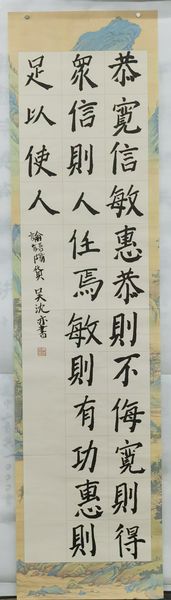 恭寛信敏惠恭則不侮寛則得
衆信則人任焉敏則有功惠則
足以使人
論語陽貨 吴沈亦書